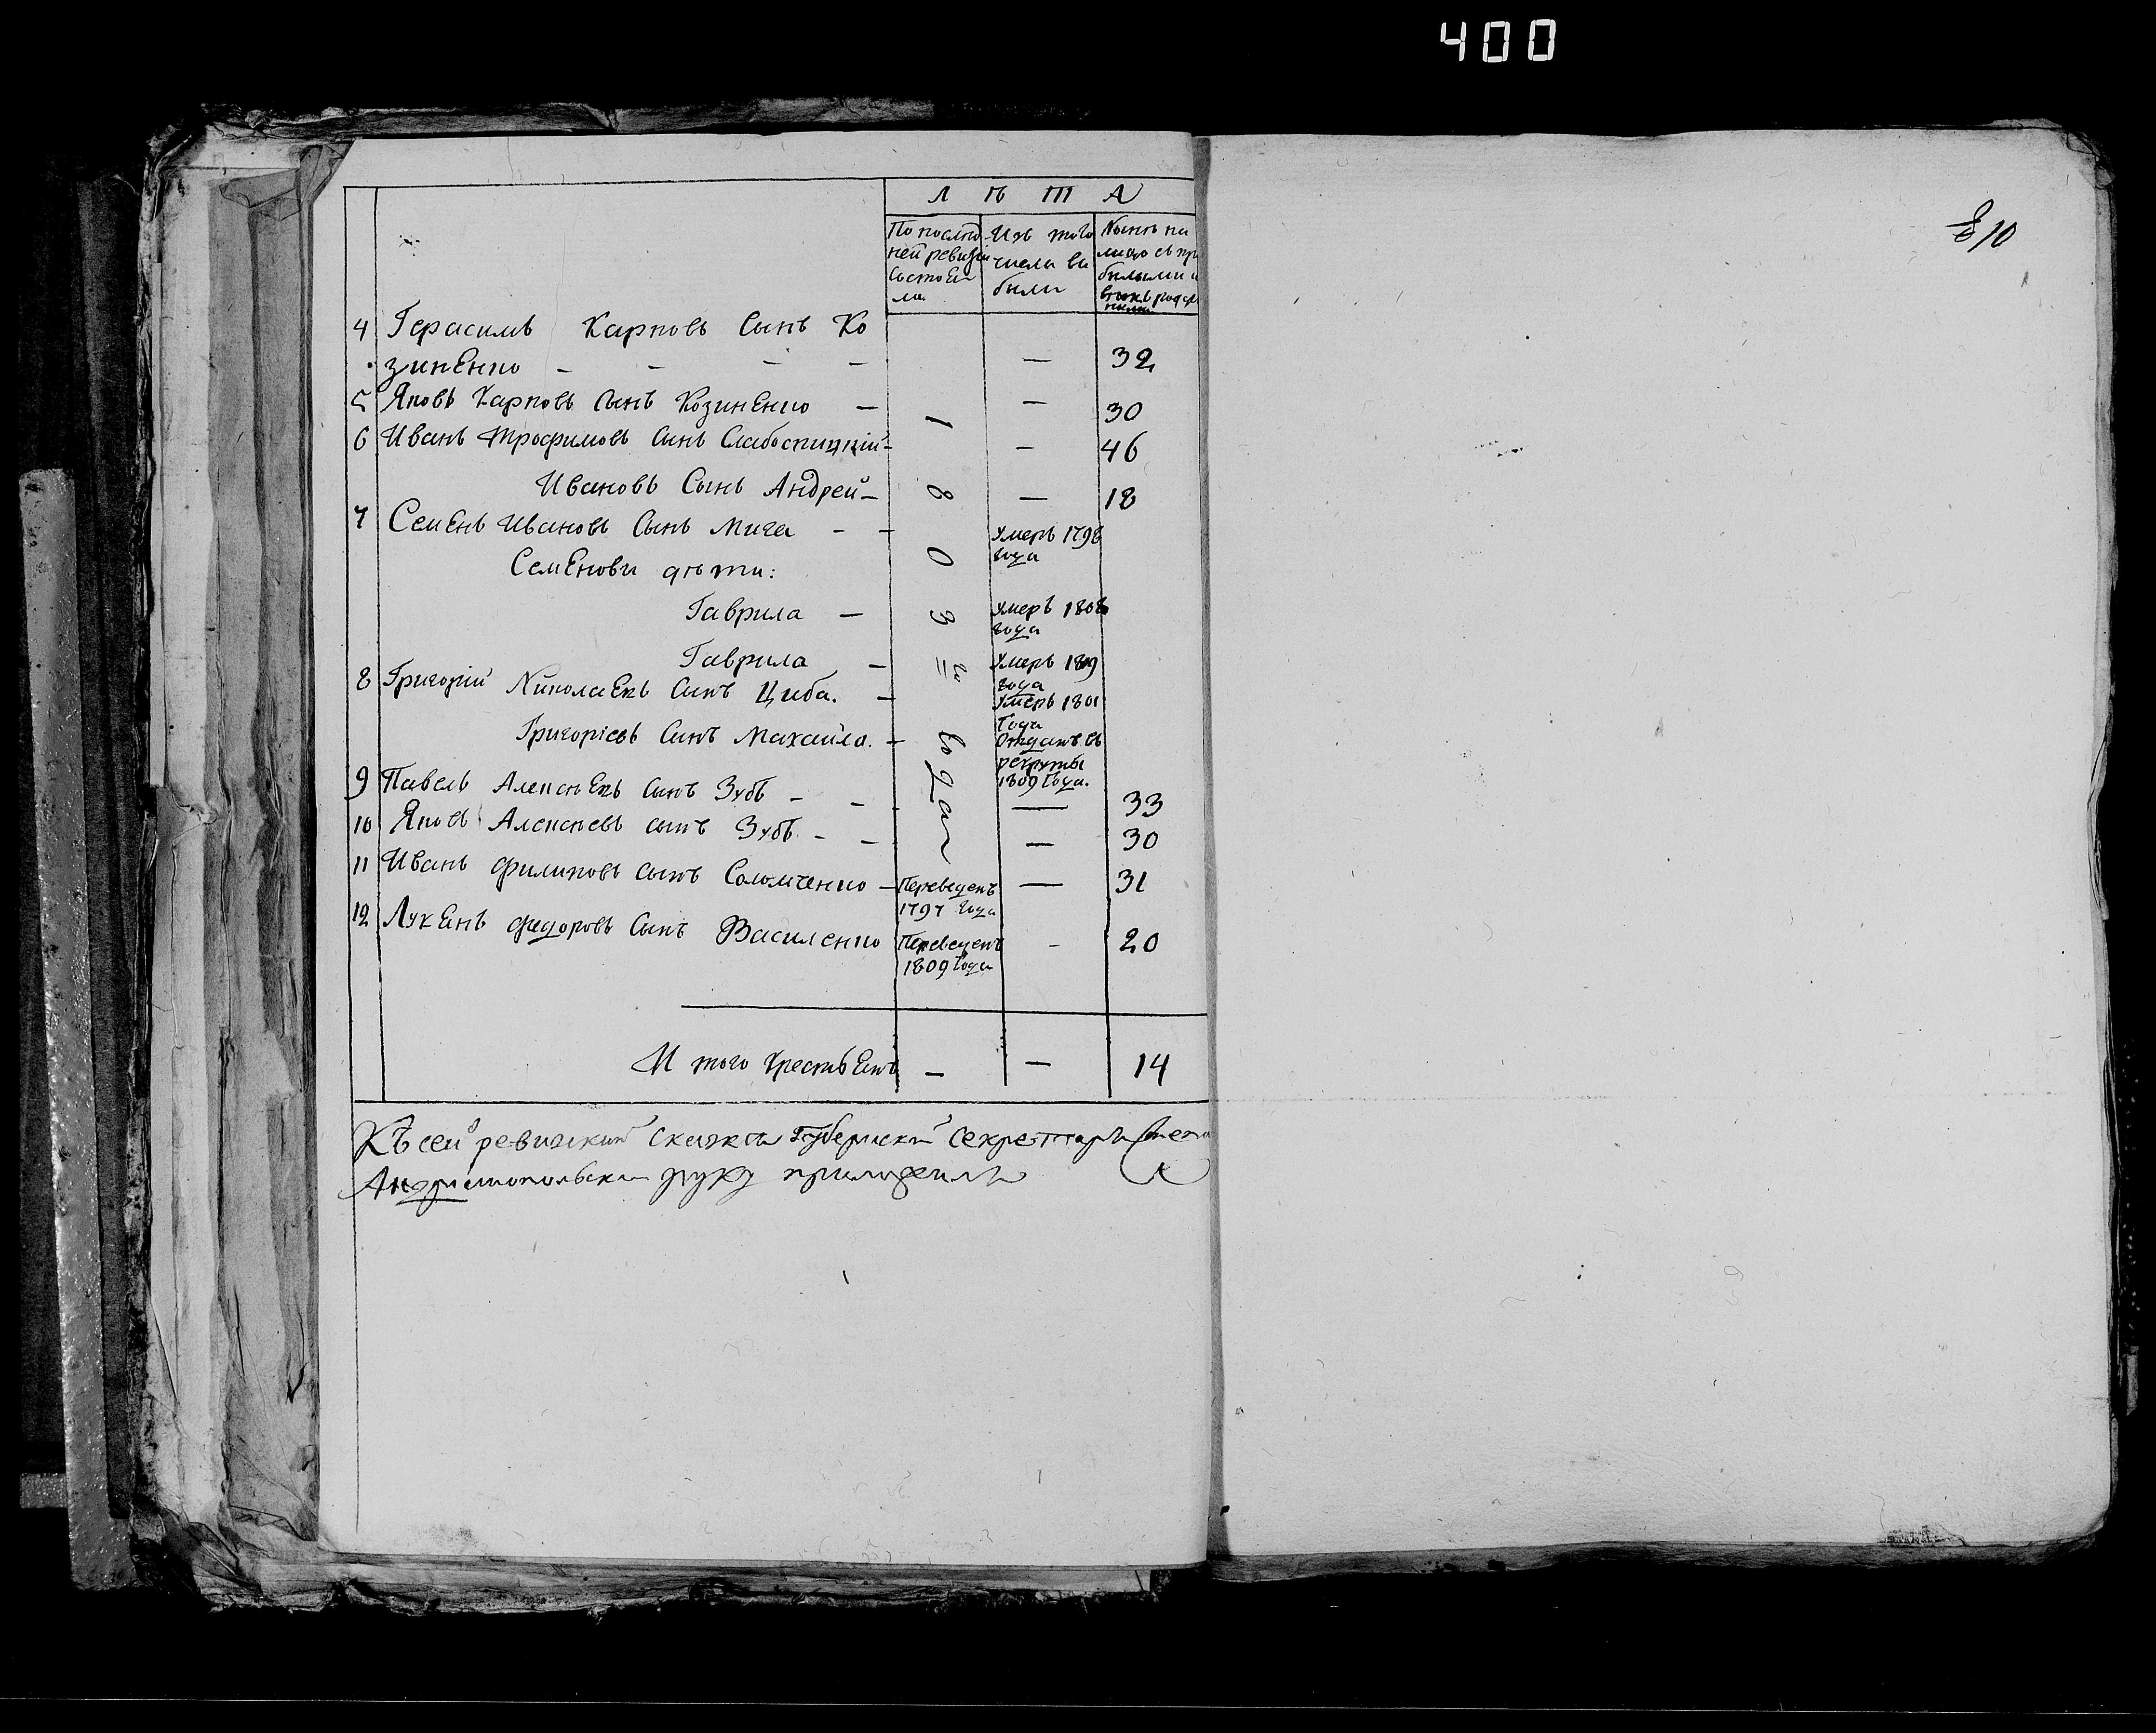 400
810
Л Ѣ Т А
По послѣд
ней ревизіи
состоя
ло
Изъ того
числа вы
были
Нынѣ на
лицо съ при
былыми и
4 Герасимъ Карповъ Сынъ Ко
зиненко - - - - — 32
5 Яковъ Карповъ Сынъ Козиненко — — 30
6 Иванъ Трофимовъ Сынъ Слабоспицкій - — 46
Ивановъ Сынъ Андрей - — 18
7 Семенъ Ивановъ Сынъ Мига - - Умеръ 1798
года
Семенови дѣти:
Гаврила — Умеръ 1808
года
Гаврила — Умеръ 1809
года
8 Григорій Николаевъ Сынъ Циба. - Умеръ 1801
года
Григоріевъ Сынъ Михайла. - Отданъ въ
рекруты
1809 года.
1
8
0
3
го
года
9 Павелъ Алексѣевъ Сынъ Зубъ - - — 33
10 Яковъ Алексѣевъ сынъ Зубъ - - — 30
11 Иванъ Филиповъ сынъ Соломченко - Переведенъ — 31
1797 года
12 Лукянъ Федоровъ Сынъ Василенко Переведенъ - 20
1809 года
И того Крестьянъ — — 14
Къ сей ревизкой сказкѣ Губернски Секретарь
руку приложилъ